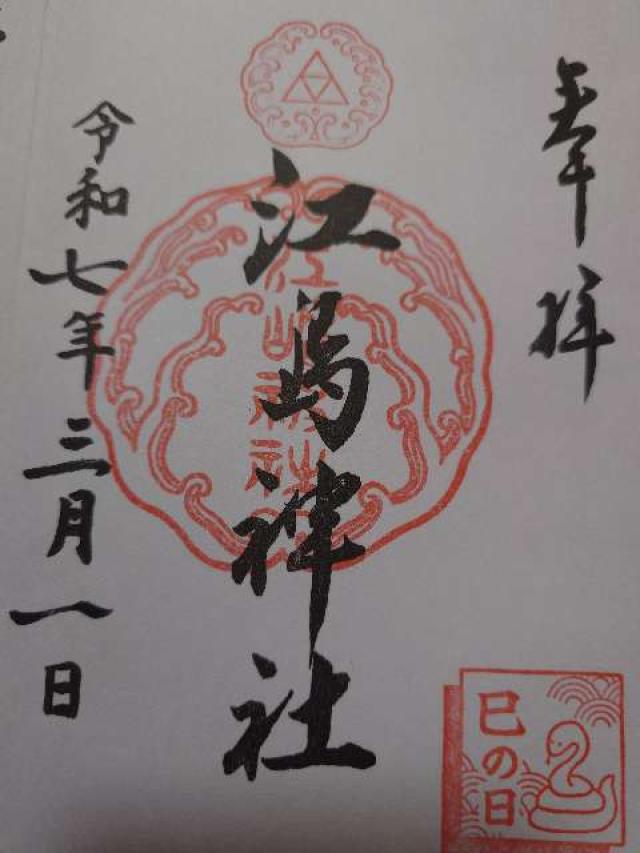 奉拝
江島神社
江島神社
令和七年三月一日
巳の日